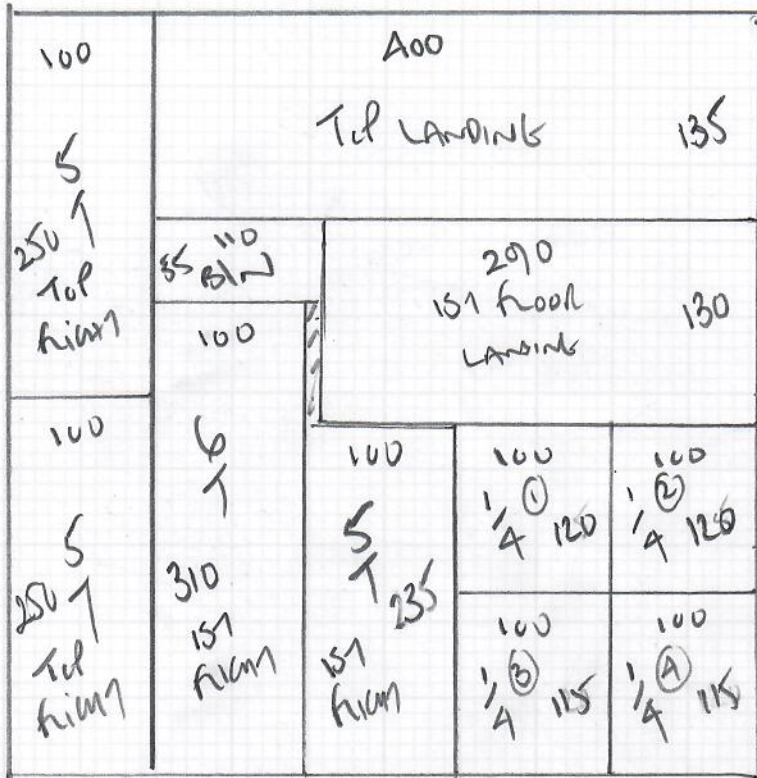 100
5
↑
250
TOP
FLIGHT
400
TOP LANDING 135
110
55 BLN
290
1ST FLOOR 130
LANDING
100
5
↑
250
TOP
FLIGHT
100
6
↑
310
1ST
FLIGHT
100
5
↑
235
1ST
FLIGHT
100
1/4 ① 120
100
1/4 ② 120
100
1/4 ③ 115
100
1/4 ④ 115